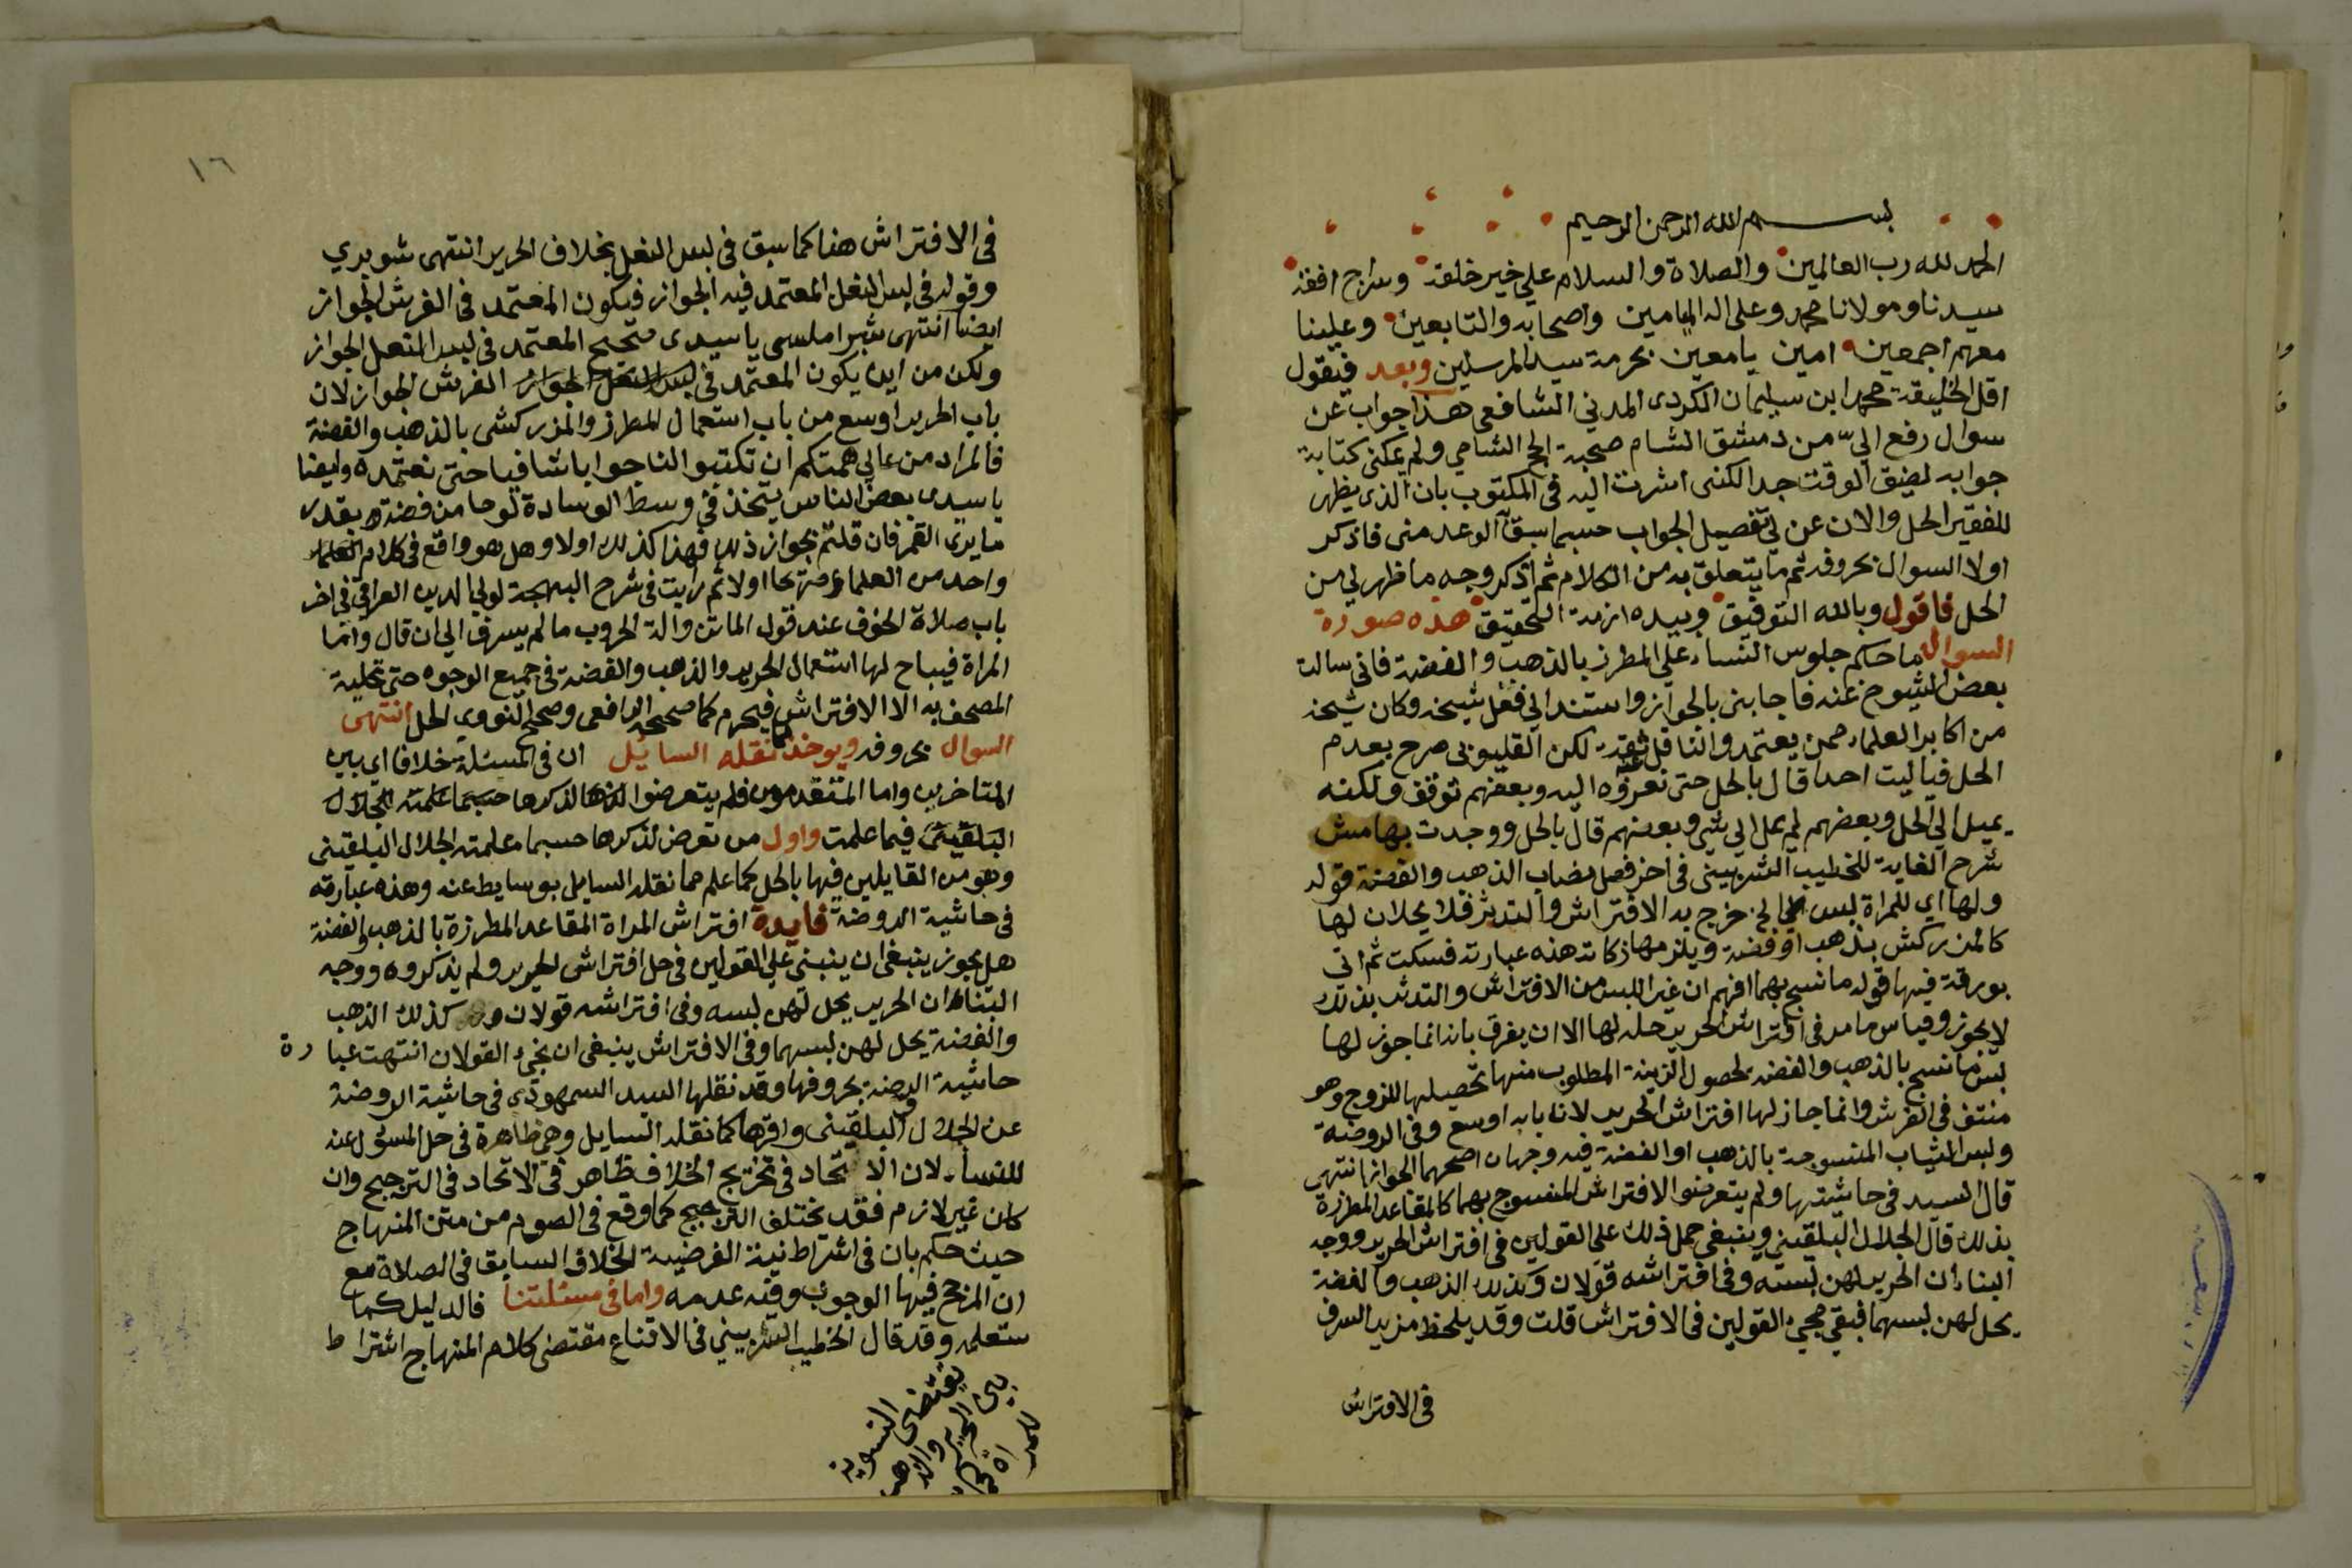 بسم الله الرحمن الرحيم
الحمد لله رب العالمين والصلاة والسلام علي خير خلقه وسراج افقه
سيدنا ومولانا محمد وعلى اله الميامين واصحابه والتابعين وعلينا
معهم اجمعين امين يا معين بحرمة سيد المرسلين وبعد فيقول
اقل الخليقة محمد ابن سليمان الكردى المدني الشافعي هذا جواب عن
سوال رفع الي من دمشق الشام صحبة الحج الشامي ولم يمكني كتابة
جوابه لضيق الوقت جدا لكنى اشرت اليه في المكتوب بان الذى يظهر
للفقير الحل والان عن لي تفصيل الجواب حسبما سبق الوعد منى فاذكر
اولا السوال بحروفه ثم ما يتعلق به من الكلام ثم اذكر وجه ما ظهر لي من
الحل فاقول وبالله التوفيق وبيده ازمة التحقيق هذه صورة
السوال ما حكم جلوس النساء علي المطرز بالذهب والفضة فاني سالت
بعض الشيوخ عنه فاجابني بالجواز واستند الي فعل شيخه وكان شيخه
من اكابر العلماء ممن يعتمد والناقل ثقة لكن القليوبي صرح بعدم
الحل فياليت احدا قال بالحل حتى نعزوه اليه وبعضهم توقف ولكنه
يميل الي الحل وبعضهم لم يمل الي شي وبعضهم قال بالحل ووجدت بهامش
شرح الغاية للخطيب الشربيني في اخر فصل نصاب الذهب والفضة قوله
ولها اي للمراة لبس الخ خرج به الافتراش والتدثر فلا يحلان لها
كالمزركش بذهب او فضة ويلزمها زكاته هذه عبارته فسكت ثم اتي
بورقة فيها قوله ما نسج بهما افهم ان غير اللبس من الافتراش والتدثر بذلك
لا يجوز وقياس ما مر في افتراش الحرير حله لها الا ان يفرق بانه انما جوز لها
لبس ما نسج بالذهب والفضة لحصول الزينة المطلوب منها تحصيلها للزوج وهو
منتف في الفرش وانما جاز لها افتراش الحرير لان بابه اوسع وفي الروضة
ولبس الثياب المنسوجة بالذهب او الفضة فيه وجهان اصحهما الجواز انتهى
قال السيد في حاشيتها ولم يتعرضوا لافتراش المنسوج بهما كالمقاعد المطرزة
بذلك قال الجلال البلقيني وينبغي حمل ذلك على القولين في افتراش الحرير ووجه
البناء ان الحرير لهن لبسه وفي افتراشه قولان وكذلك الذهب والفضة
يحل لهن لبسهما فبقي مجيء القولين في الافتراش قلت وقد يلحظ مزيد السرف
في الافتراش
١٦
في الافتراش هنا كما سبق في لبس النعل بخلاف الحرير انتهى شوبري
وقوله في لبس النعل المعتمد فيه الجواز فيكون المعتمد في الفرش الجواز
ايضا انتهى شبراملسي يا سيدى صحيح المعتمد في لبس النعل الجواز
ولكن من اين يكون المعتمد في لبس النعل الجواز الفرش الجواز لان
باب الحرير اوسع من باب استعمال المطرز والمزركش بالذهب والفضة
فالمراد من عالي همتكم ان تكتبوا لنا جوابا شافيا حتى نعتمده وايضا
يا سيدى بعض الناس يتخذ في وسط الوسادة لوحا من فضة بقدر
ما يرى القمر فان قلتم بجواز ذلك فهذا كذلك اولا وهل هو واقع في كلام
واحد من العلما صريحا اولا ثم رايت في شرح البهجة لولي الدين العراقي في اخر
باب صلاة الخوف عند قول الماتن والة الحروب ما لم يسرف الي ان قال وانما
المراة فيباح لها استعمال الحرير والذهب والفضة في جميع الوجوه حتى تحلية
المصحف به الا الافتراش فيحرم كما صححه الرافعي وصحح النووي الحل انتهى
السوال بحروفه ويوخذ مما نقله السايل ان في المسئلة خلافا اى بين
المتاخرين واما المتقدمون فلم يتعرضوا لذكرها حسبما علمته الجلال
البلقيني فيما علمت واول من تعرض لذكرها حسبما علمته الجلال البلقينى
وهو من القايلين فيها بالحل كما علم مما نقله السايل بوسايط عنه وهذه عبارته
في حاشية الروضة فايدة افتراش المراة المقاعد المطرزة بالذهب والفضة
هل يجوز ينبغي ان ينبنى علي القولين في حل افتراش الحرير ولم يذكروه ووجه
البناء ان الحرير يحل لهن لبسه وفي افتراشه قولان كذلك الذهب
والفضة يحل لهن لبسهما وفي الافتراش ينبغى ان يجيء القولان انتهت عبارة
حاشية الروضة بحروفها وقد نقلها السيد السمهودى في حاشية الروضة
عن الجلال البلقيني واقرها كما نقله السايل وهي ظاهرة في حل المسؤل عنه
للنساء لان الاتحاد في تخريج الخلاف ظاهر في الاتحاد في الترجيح وان
كان غير لازم فقد يختلف الترجيح كما وقع في الصوم من متن المنهاج
حيث حكم بان في اشتراط نية الفرضية الخلاف السابق في الصلاة مع
ان المرجح فيها الوجوب وفيه عدمه واما في مسئلتنا فالدليل كما
ستعلمه وقد قال الخطيب الشربيني في الاقناع مقتضى كلام المنهاج اشتراط
يقتضي التسوية
بين الحرير والذهب